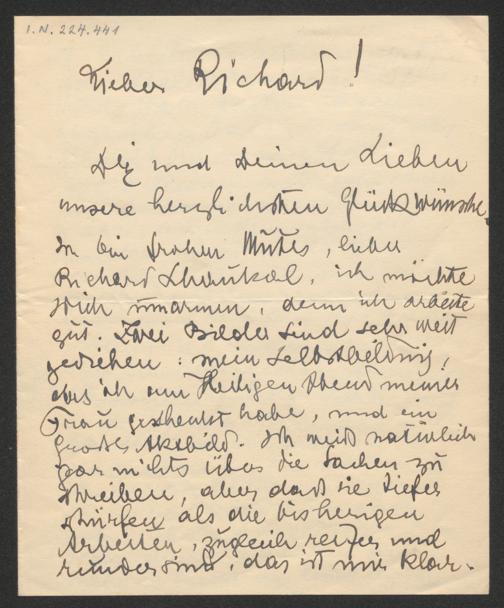 I.N. 224.441
Lieber Richard!
Dir und Deinen Lieben
unsere herzlichsten Glückwünsche.
Ich bin frohen Mutes, lieber
Richard Schaukal, ich möchte
Dich umarmen, denn ich arbeite
gut. Zwei Bilder sind sehr weit
gediehen: mein Selbstbildnis,
das ich am Heiligen Abend meiner
Frau geschenkt habe, und ein
großes Aktbild. Ich weiß natürlich
gar nichts über die Sachen zu
schreiben, aber daß sie tiefer
schürfen als die bisherigen
Arbeiten, zugleich reifer und
runder sind, das ist mir klar.